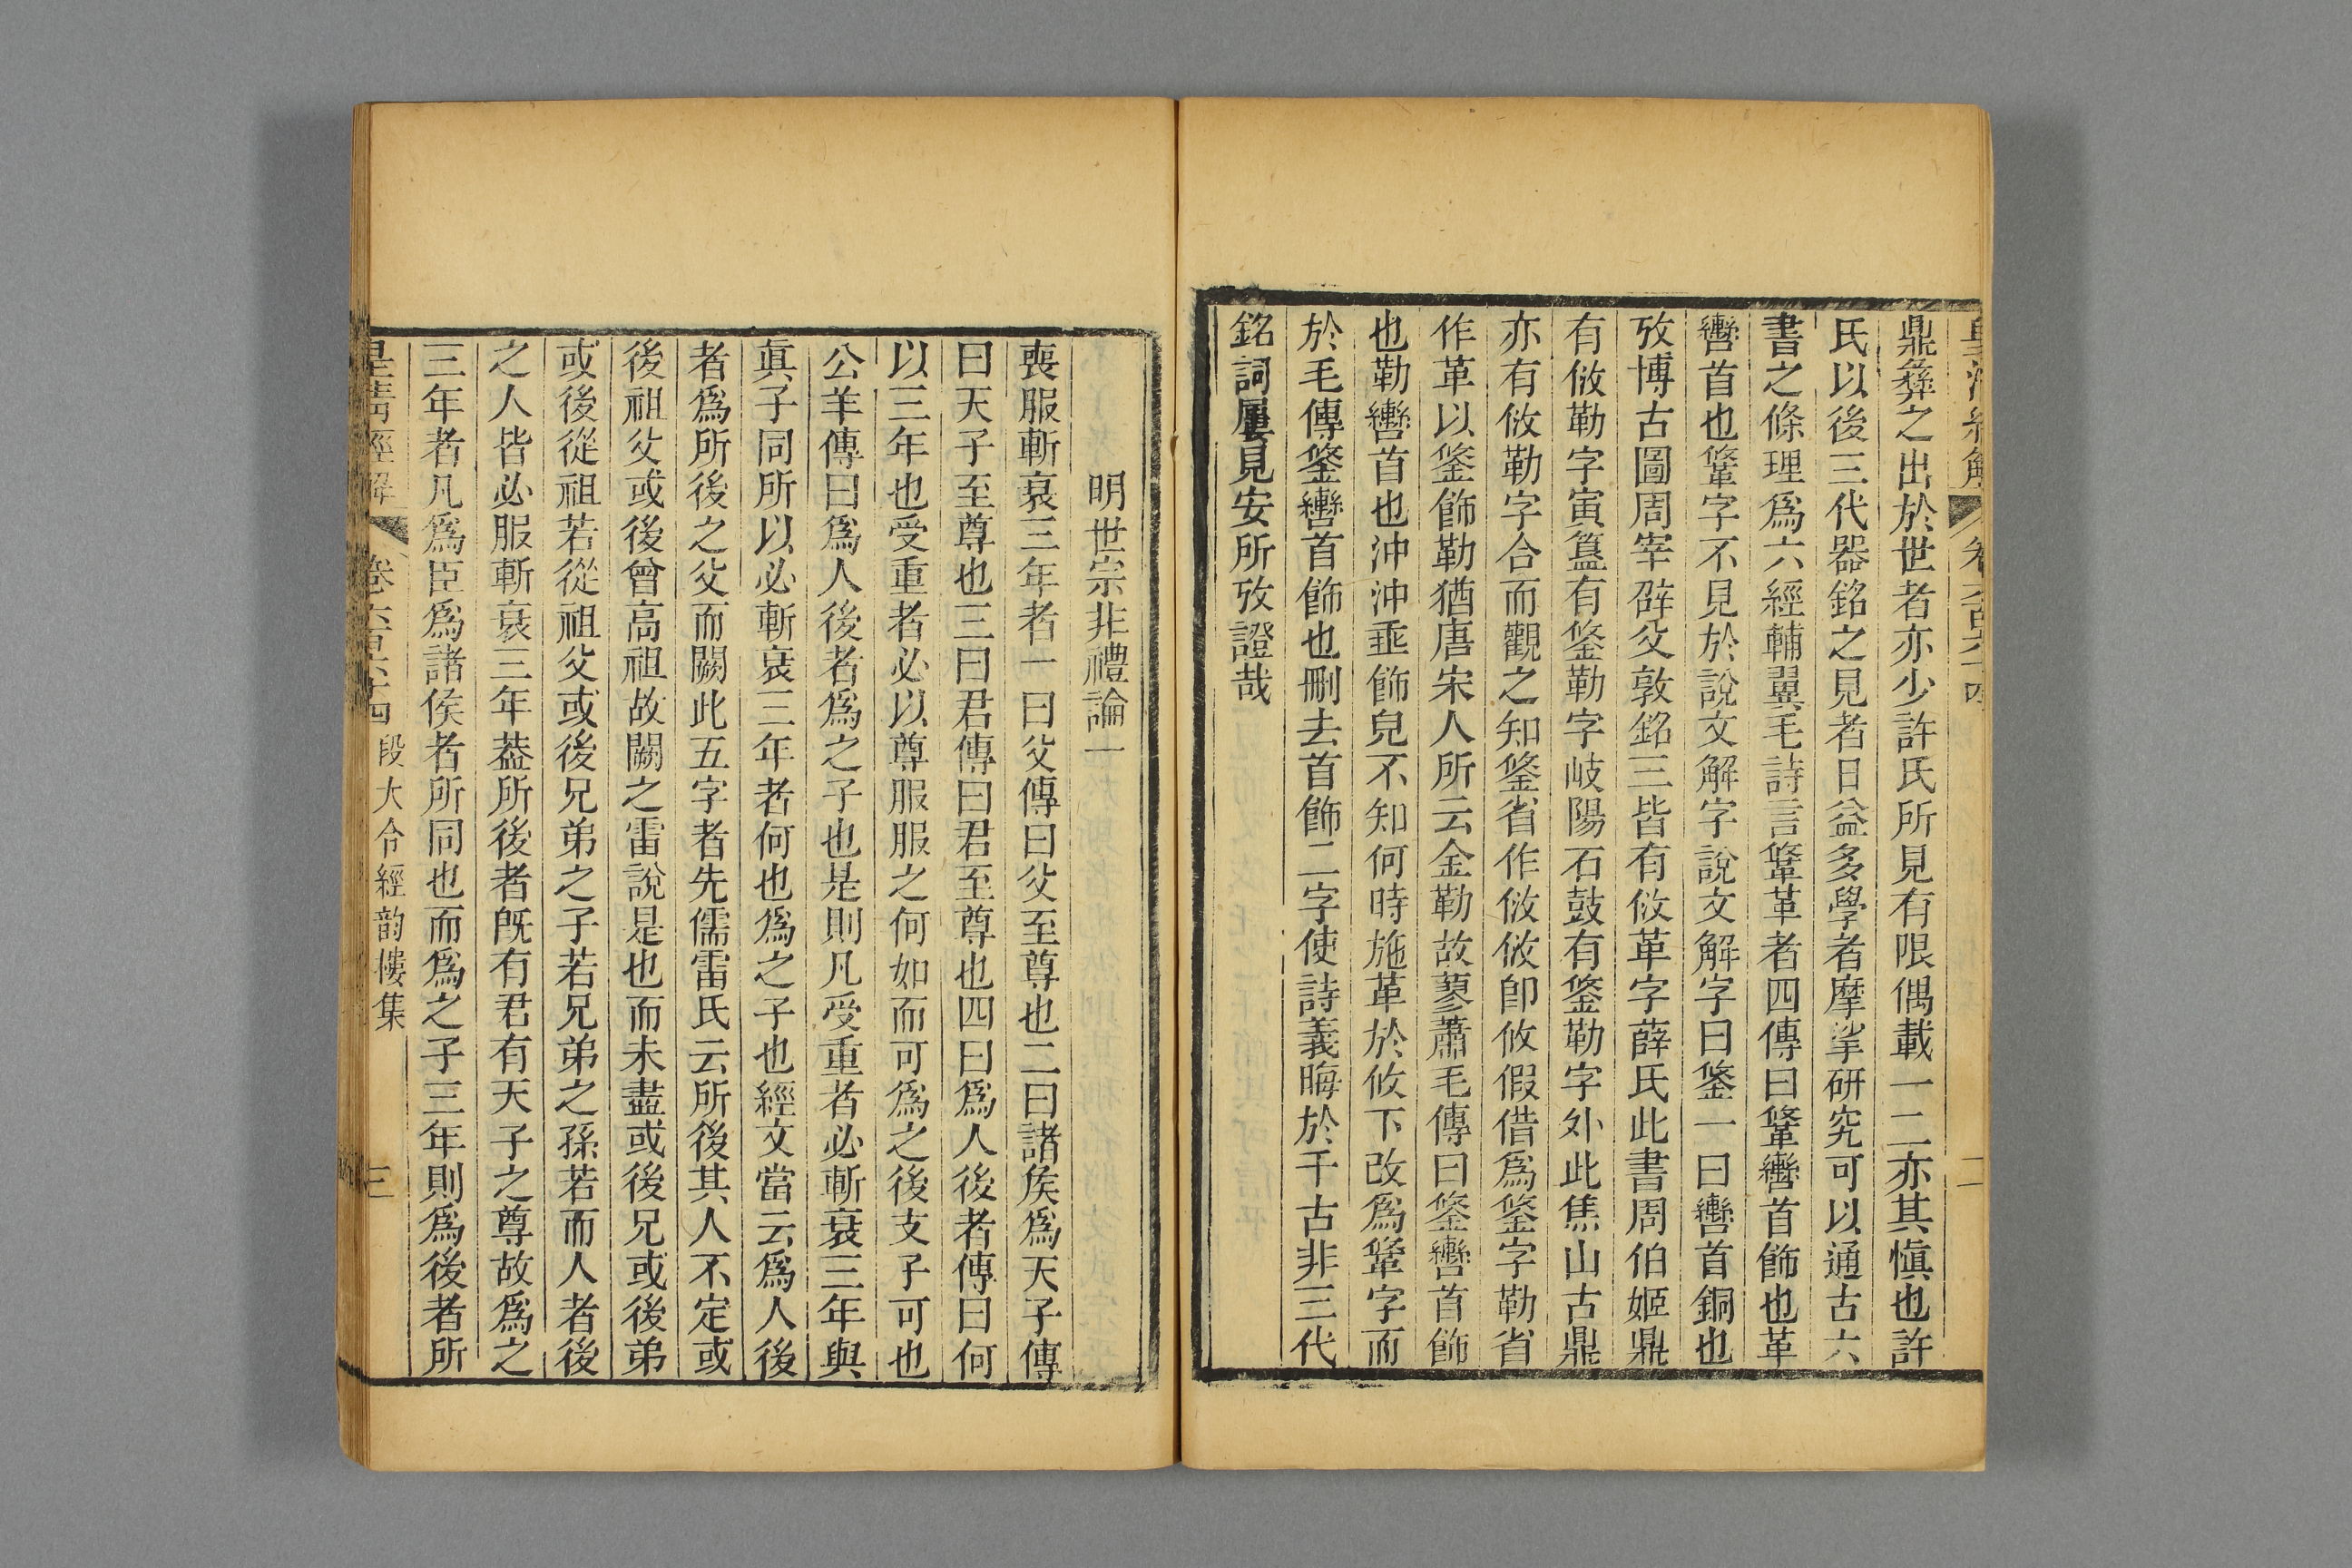 鼎彝之出於世者亦少許氏所見有限偶載一二亦其愼也許
氏以後三代器銘之見者日益多學者摩挲研究可以通古六
書之條理爲六經輔翼毛詩言鞗革者四傳曰鞗轡首飾也革
轡首也鞗字不見於說文解字說文解字曰鋚一曰轡首銅也
攷博古圖周宰辟父敦銘三皆有攸革字薛氏此書周伯姬鼎
有攸勒字寅簋有鋚勒字岐陽石鼓有鋚勒字外此焦山古鼎
亦有攸勒字合而觀之知鋚省作攸攸卽攸假借爲鋚字勒省
作革以鋚飾勒猶唐宋人所云金勒故蓼蕭毛傳曰鋚轡首飾
也勒轡首也沖沖垂飾皃不知何時施革於攸下改爲鞗字而
於毛傳鋚轡首飾也刪去首飾二字使詩義晦於千古非三代
銘詞屢見安所攷證哉
明世宗非禮論一
喪服斬衰三年者一曰父傳曰父至尊也二曰諸矦爲天子傳
曰天子至尊也三曰君傳曰君至尊也四曰爲人後者傳曰何
以三年也受重者必以尊服服之何如而可爲之後支子可也
公羊傳曰爲人後者爲之子也是則凡受重者必斬衰三年與
眞子同所以必斬衰三年者何也爲之子也經文當云爲人後
者爲所後之父而闕此五字者先儒雷氏云所後其人不定或
後祖父或後曾高祖故闕之雷說是也而未盡或後兄或後弟
或後從祖若從祖父或後兄弟之子若兄弟之孫若而人者後
之人皆必服斬衰三年葢所後者旣有君有天子之尊故爲之
三年者凡爲臣爲諸侯者所同也而爲之子三年則爲後者所
皇淸經解 卷六百六十四 段大令經韵樓集 三